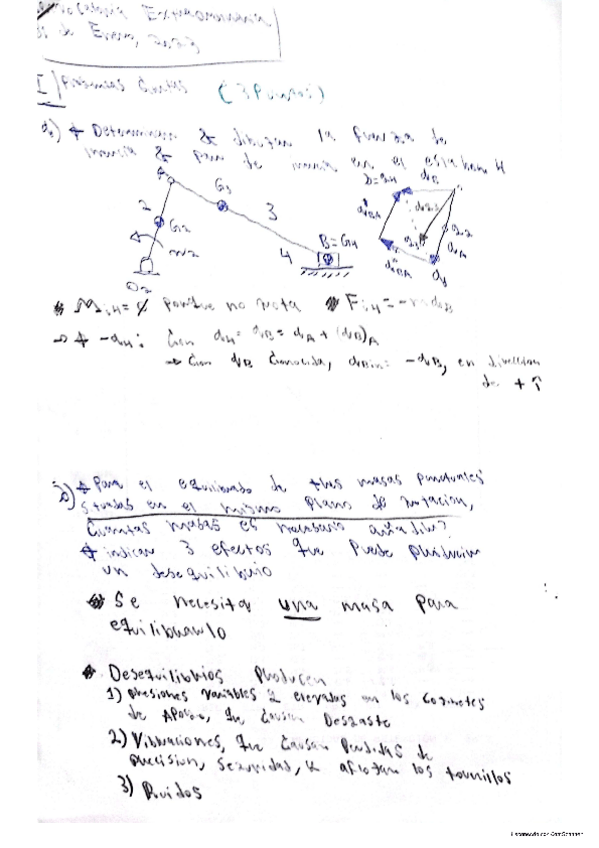 Convocatoria Extraordinaria
de Enero, 2023
I) Problemas Cortos (3 Puntos)
a) * Determinar & dibujar la fuerza de
inercia & par de inercia en el eslabon 4
A
G3
3
2
G2
B=G4
4
O2
aB
aB
aA
* Mi4 = 0 porque no rota * Fi4 =
→ * -a4: Con a4 = aB = aA + (aB)A
→ Con aB Conocida, -aB, en direccion
de + î
* Para el equilibrado de tres masas puntuales
situadas en el mismo plano de rotacion,
Cuantas masas es necesario añadir?
* indicar 3 efectos que puede producir
un desequilibrio
* Se necesita una masa para
equilibrarlo
* Desequilibrios Producen
1) presiones variables & elevadas en los Cojinetes
de Apoyo, que Causan Desgaste
2) Vibraciones, que Causan Perdidas de
precision, seguridad, & aflojan los tornillos
3) Ruidos
Escaneado con CamScanner